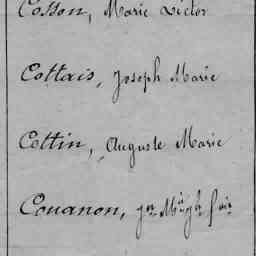 Cosson, Marie Victor
Cottais, Joseph Marie
Cottin, Auguste Marie
Couanon, jn Mie